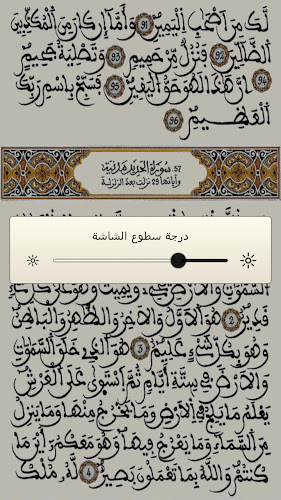 لَّكَ مِنَ اَصْحَٰبِ اِلْيَمِينِ 91 وَأَمَّآ إِن كَانَ مِنَ اَلْمُكَذِّبِينَ
اَلضَّآلِّينَ 92 فَنُزُلٌ مِّنْ حَمِيمٍ 93 وَتَصْلِيَةُ جَحِيمٍ
94 اِنَّ هَٰذَا لَهُوَ حَقُّ اُلْيَقِينِ 95 فَسَبِّحْ بِاسْمِ رَبِّكَ
اَلْعَظِيمِ 96
57. سورة الحديد مدنية
وآياتها 29 نزلت بعد الزلزلة
درجة سطوع الشاشة
اُلسَّمَٰوَٰتِ وَالْأَرْضِ يُحْيِۦ وَيُمِيتُ وَهُوَ عَلَىٰ كُلِّ شَيْءٍ
قَدِيرٌ 2 هُوَ اَلْأَوَّلُ وَالْأَخِرُ وَالظَّٰهِرُ وَالْبَاطِنُ
وَهُوَ بِكُلِّ شَيْءٍ عَلِيمٌ 3 هُوَ اَلذِى خَلَقَ اَلسَّمَٰوَٰتِ
وَالْأَرْضَ فِى سِتَّةِ أَيَّامٍ ثُمَّ اَسْتَوَىٰ عَلَى اَلْعَرْشِ
يَعْلَمُ مَا يَلِجُ فِى اِلْأَرْضِ وَمَا يَخْرُجُ مِنْهَا وَمَا يَنزِلُ
مِنَ اَلسَّمَآءِ وَمَا يَعْرُجُ فِيهَا وَهُوَ مَعَكُمُ أَيْنَ مَا
كُنتُمْ وَاللَّهُ بِمَا تَعْمَلُونَ بَصِيرٌ 4 لَّهُۥ مُلْكُ